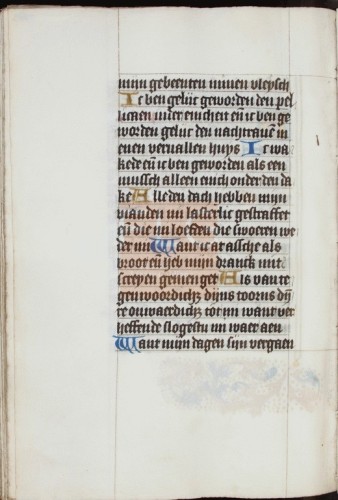 mijn gebeenten minen vleysch
Ic ben gelijc geworden den pel
licaen inder eenicheit eñ ic ben ge
worden gelijc den nachtrauẽ in
enen veruallen huys Ic wa
kede eñ ic ben geworden als een
mussch alleen eenich onder den da
ke Alle den dach hebben mijn
vianden mi lasterlic gestraffet
eñ die mi loefden die swoeren we
der mi Want ic at assche als
broot eñ ic heb mijn dranck mit
screyen gemenget Als van te
genwoordich dijns toorns dij
want ver
heffende slogestu mi neder
Want mijn dagen sijn vergaen